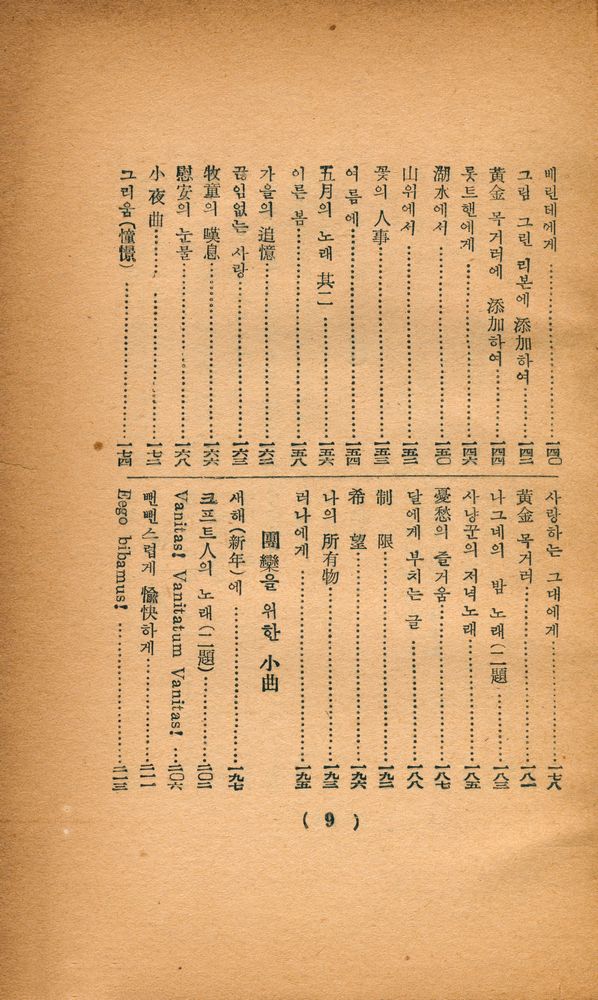 베린데에게……一四〇
그림 그린 리본에 添加하여……一四二
黃金 목거리에 添加하여……一四四
롯트헨에게……一四六
湖水에서……一五〇
山위에서……一五二
꽃의 人事……一五三
여름에……一五四
五月의 노래 其二……一五六
이른 봄……一五八
가을의 追憶……一六二
끊임없는 사랑……一六三
牧童의 嘆息……一六六
慰安의 눈물……一六八
小夜曲……一七二
그리움(憧憬)……一七四
사랑하는 그대에게……一七八
黃金 목거리……一八一
나그네의 밤 노래(二題……一八三
사냥꾼의 저녁노래……一八五
憂愁의 즐거움……一八七
달에게 부치는 글……一八八
制限……一九二
希望……一九六
나의 所有物……一九三
러나에게……一九五
團欒을 위한 小曲
새해(新年)에……一九七
코프트人의 노래(二題)……二〇二
Vanitas! Vanitatum Vanitas!…二〇六
뻔뻔스럽게 愉快하게……二一一
Eego bibamus!……二一三
( 9 )